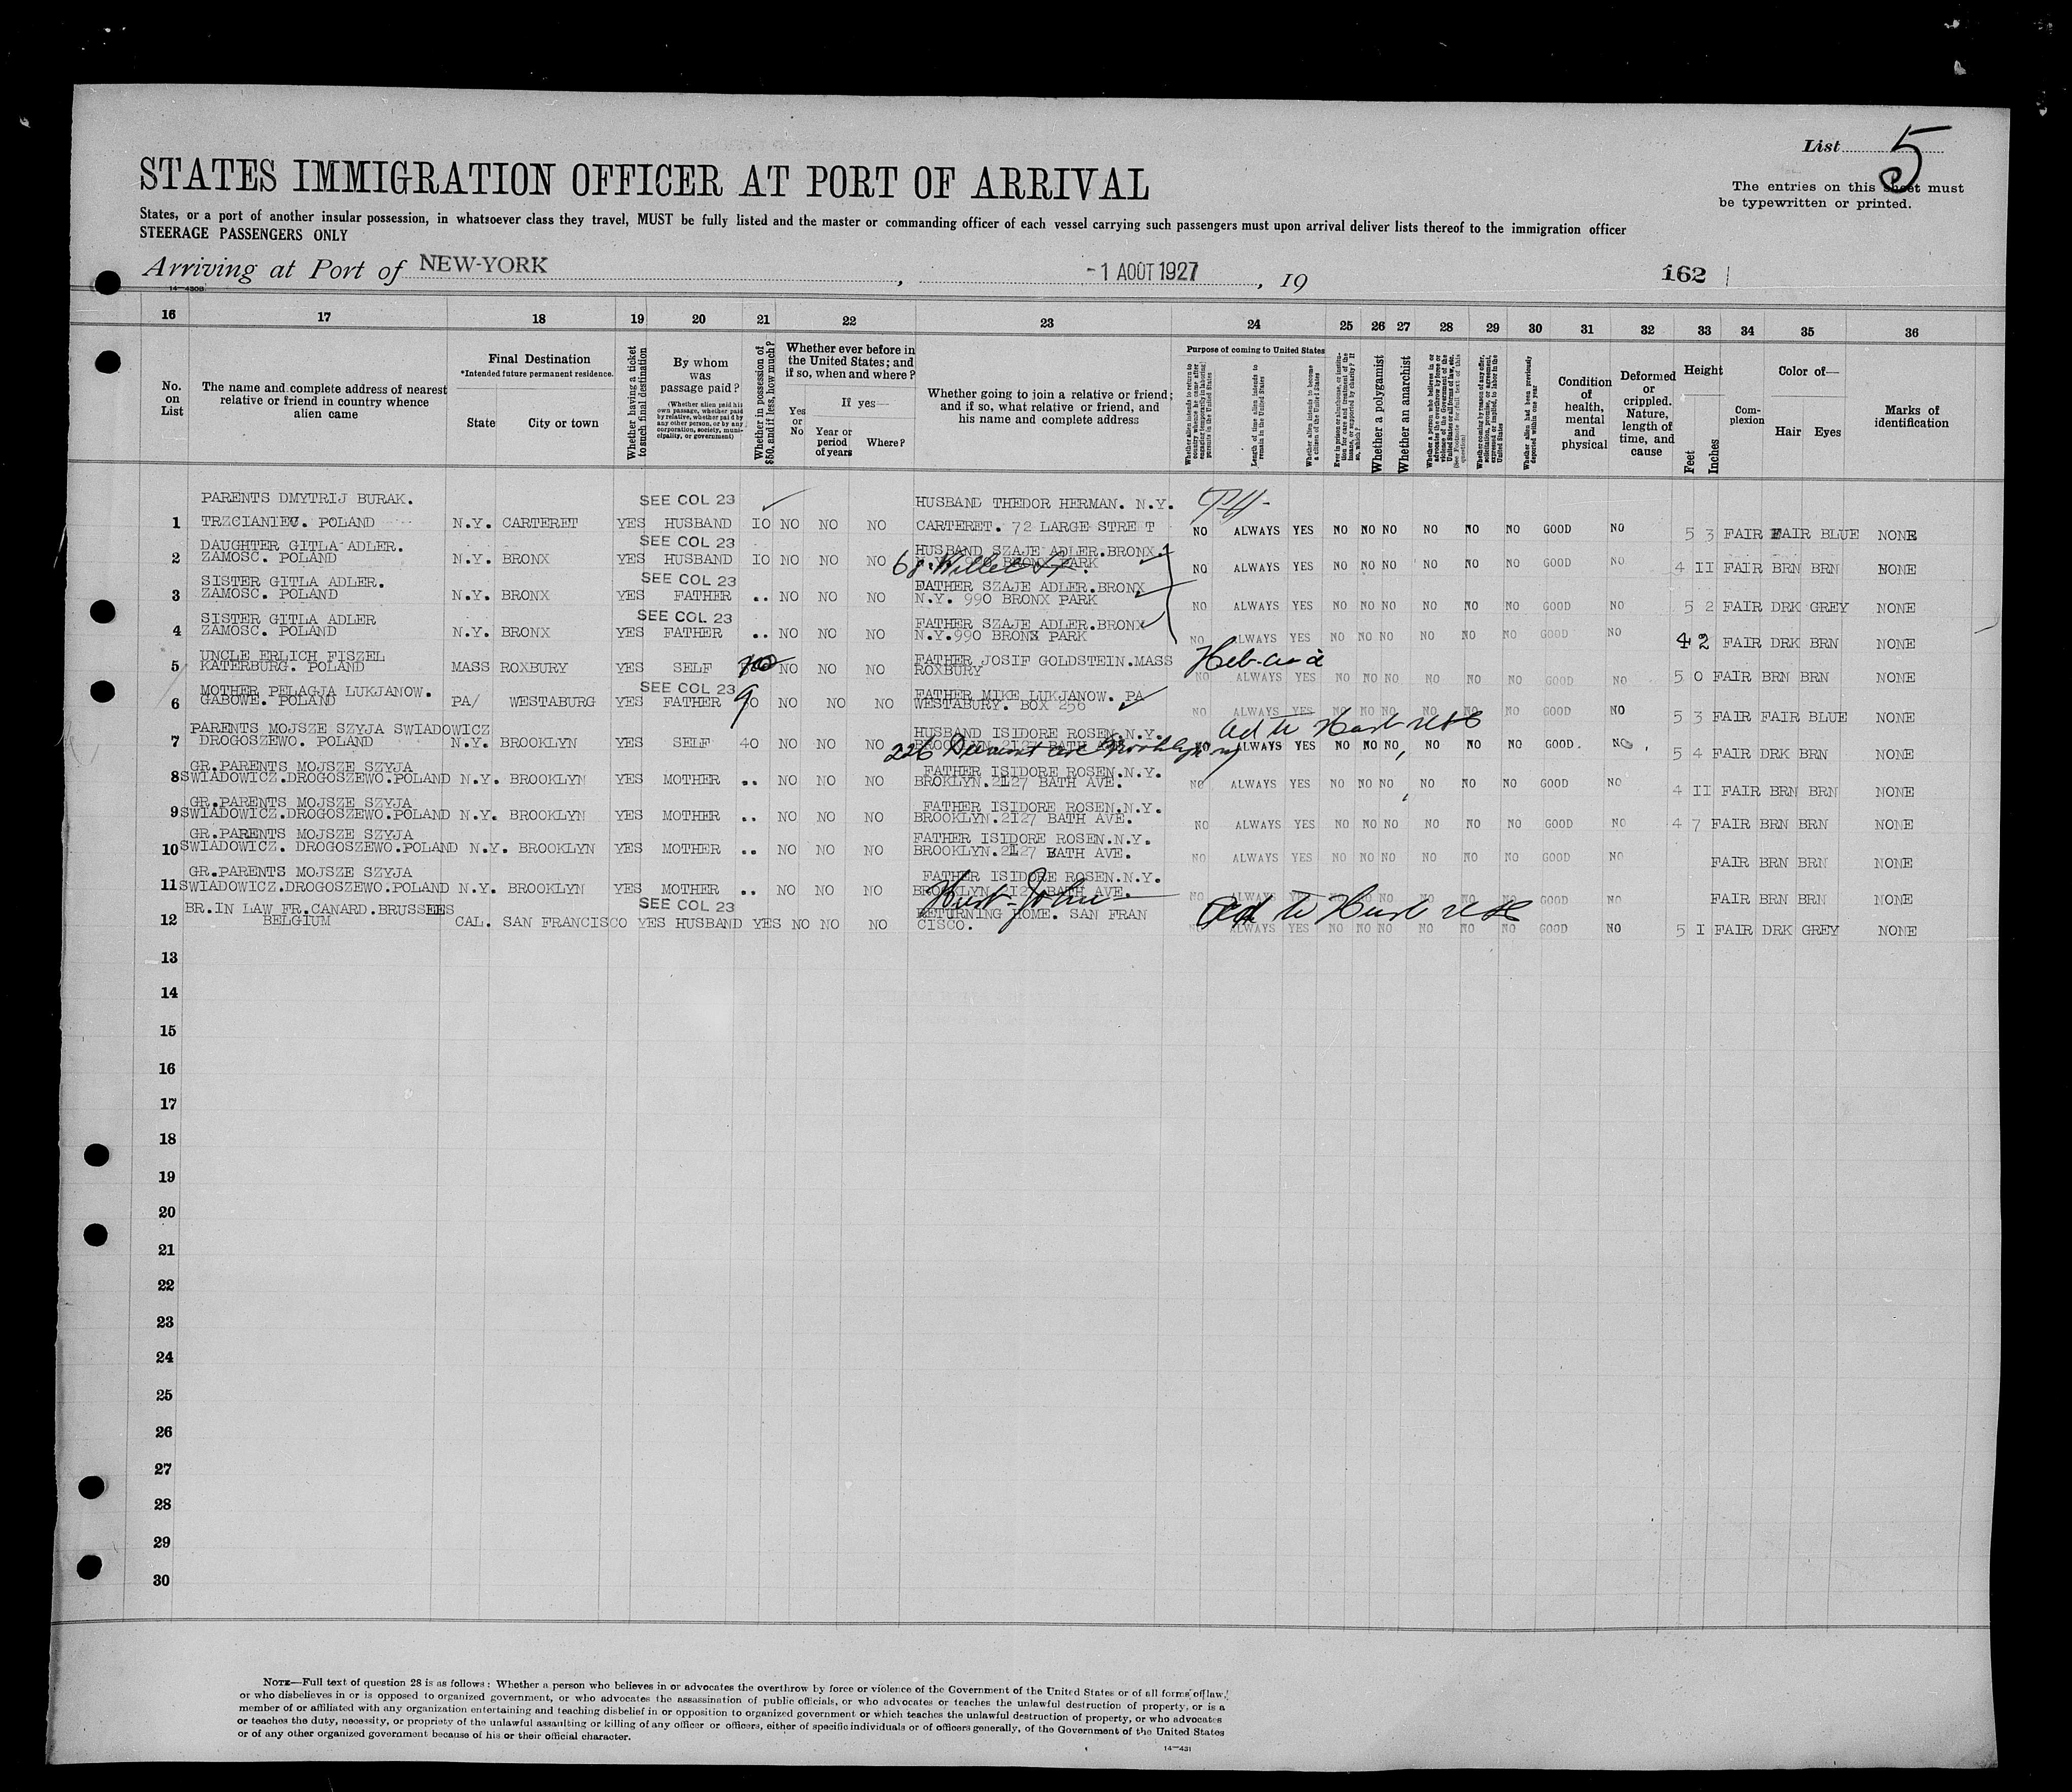 List 5
STATES IMMIGRATION OFFICER AT PORT OF ARRIVAL
The entries on this sheet must
be typewritten or printed.
States, or a port of another insular possession, in whatsoever class they travel, MUST be fully listed and the master or commanding officer of each vessel carrying such passengers must upon arrival deliver lists thereof to the immigration officer
STEERAGE PASSENGERS ONLY
Arriving at Port of NEW-YORK , -1 AOÛT 1927 , 19 162
14-430B
16 17 18 19 20 21 22 23 24 25 26 27 28 29 30 31 32 33 34 35 36
No. on List
The name and complete address of nearest relative or friend in country whence alien came
Final Destination
*Intended future permanent residence.
State City or town
Whether having a ticket to such final destination
By whom was passage paid?
(Whether alien paid his own passage, whether paid by relative, whether paid by any other person, or by any corporation, society, municipality, or government)
Whether in possession of $50, and if less, how much?
Whether ever before in the United States; and if so, when and where?
Yes or No
If yes—
Year or period of years
Where?
Whether going to join a relative or friend; and if so, what relative or friend, and his name and complete address
Purpose of coming to United States
Length of time alien intends to remain in the United States
Whether alien intends to become a citizen of the United States
Whether a polygamist
Whether an anarchist
Whether alien had been previously deported within one year
Condition of health, mental and physical
Deformed or crippled. Nature, length of time, and cause
Height
Feet Inches
Complexion
Color of—
Hair Eyes
Marks of identification
PARENTS DMYTRIJ BURAK. SEE COL 23 HUSBAND THEDOR HERMAN. N.Y.
1 TRZCIANIEC. POLAND N.Y. CARTERET YES HUSBAND IO NO NO NO CARTERET. 72 LARGE STRE T NO ALWAYS YES NO NO NO NO NO NO GOOD NO 5 3 FAIR FAIR BLUE NONE
DAUGHTER GITLA ADLER. SEE COL 23 HUSBAND SZAJE ADLER.BRONX.
2 ZAMOSC. POLAND N.Y. BRONX YES HUSBAND IO NO NO NO 68 Willet St. BRONX PARK NO ALWAYS YES NO NO NO NO NO NO GOOD NO 4 II FAIR BRN BRN NONE
SISTER GITLA ADLER. SEE COL 23 FATHER SZAJE ADLER.BRONX
3 ZAMOSC. POLAND N.Y. BRONX YES FATHER .. NO NO NO N.Y. 990 BRONX PARK NO ALWAYS YES NO NO NO NO NO NO GOOD NO 5 2 FAIR DRK GREY NONE
SISTER GITLA ADLER SEE COL 23 FATHER SZAJE ADLER.BRONX
4 ZAMOSC. POLAND N.Y. BRONX YES FATHER .. NO NO NO N.Y.990 BRONX PARK NO ALWAYS YES NO NO NO NO NO NO GOOD NO 4 2 FAIR DRK BRN NONE
UNCLE ERLICH FISZEL FATHER JOSIF GOLDSTEIN.MASS
5 KATERBURG. POLAND MASS ROXBURY YES SELF NO NO NO ROXBURY NO ALWAYS YES NO NO NO NO NO NO GOOD NO 5 0 FAIR BRN BRN NONE
MOTHER PELAGJA LUKJANOW. SEE COL 23 FATHER MIKE LUKJANOW. PA
6 GABOWE. POLAND PA/ WESTABURG YES FATHER 90 NO NO NO WESTABURY. BOX 256 NO ALWAYS YES NO NO NO NO NO NO GOOD NO 5 3 FAIR FAIR BLUE NONE
PARENTS MOJSZE SZYJA SWIADOWICZ HUSBAND ISIDORE ROSEN.N.Y.
7 DROGOSZEWO. POLAND N.Y. BROOKLYN YES SELF 40 NO NO NO 226 Brooklyn ny ALWAYS YES NO NO NO NO NO NO GOOD. NO 5 4 FAIR DRK BRN NONE
GR.PARENTS MOJSZE SZYJA FATHER ISIDORE ROSEN.N.Y.
8 SWIADOWICZ.DROGOSZEWO.POLAND N.Y. BROOKLYN YES MOTHER .. NO NO NO BROKLYN.2127 BATH AVE. NO ALWAYS YES NO NO NO NO NO NO GOOD NO 4 II FAIR BRN BRN NONE
GR.PARENTS MOJSZE SZYJA FATHER ISIDORE ROSEN.N.Y.
9 SWIADOWICZ.DROGOSZEWO.POLAND N.Y. BROOKLYN YES MOTHER .. NO NO NO BROOKLYN.2I27 BATH AVE. NO ALWAYS YES NO NO NO NO NO NO GOOD NO 4 7 FAIR BRN BRN NONE
GR.PARENTS MOJSZE SZYJA FATHER ISIDORE ROSEN.N.Y.
10 SWIADOWICZ. DROGOSZEWO.POLAND N.Y. BROOKLYN YES MOTHER .. NO NO NO BROOKLYN.2127 BATH AVE. NO ALWAYS YES NO NO NO NO NO NO GOOD NO FAIR BRN BRN NONE
GR.PARENTS MOJSZE SZYJA FATHER ISIDORE ROSEN.N.Y.
11 SWIADOWICZ.DROGOSZEWO.POLAND N.Y. BROOKLYN YES MOTHER .. NO NO NO BROOKLYN.2I27 BATH AVE. NO ALWAYS YES NO NO NO NO NO NO GOOD NO FAIR BRN BRN NONE
BR.IN LAW FR.CANARD.BRUSSEES SEE COL 23 Husb-John RETURNING HOME. SAN FRAN
12 BELGIUM CAL. SAN FRANCISCO YES HUSBAND YES NO NO NO CISCO. NO ALWAYS YES NO NO NO NO NO NO GOOD NO 5 I FAIR DRK GREY NONE
13
14
15
16
17
18
19
20
21
22
23
24
25
26
27
28
29
30
NOTE—Full text of question 28 is as follows: Whether a person who believes in or advocates the overthrow by force or violence of the Government of the United States or of all forms of law,
or who disbelieves in or is opposed to organized government, or who advocates the assassination of public officials, or who advocates or teaches the unlawful destruction of property, or is a
member of or affiliated with any organization entertaining and teaching disbelief in or opposition to organized government or which teaches the unlawful destruction of property, or who advocates
or teaches the duty, necessity, or propriety of the unlawful assaulting or killing of any officer or officers, either of specific individuals or of officers generally, of the Government of the United States
or of any other organized government because of his or their official character.
14-431